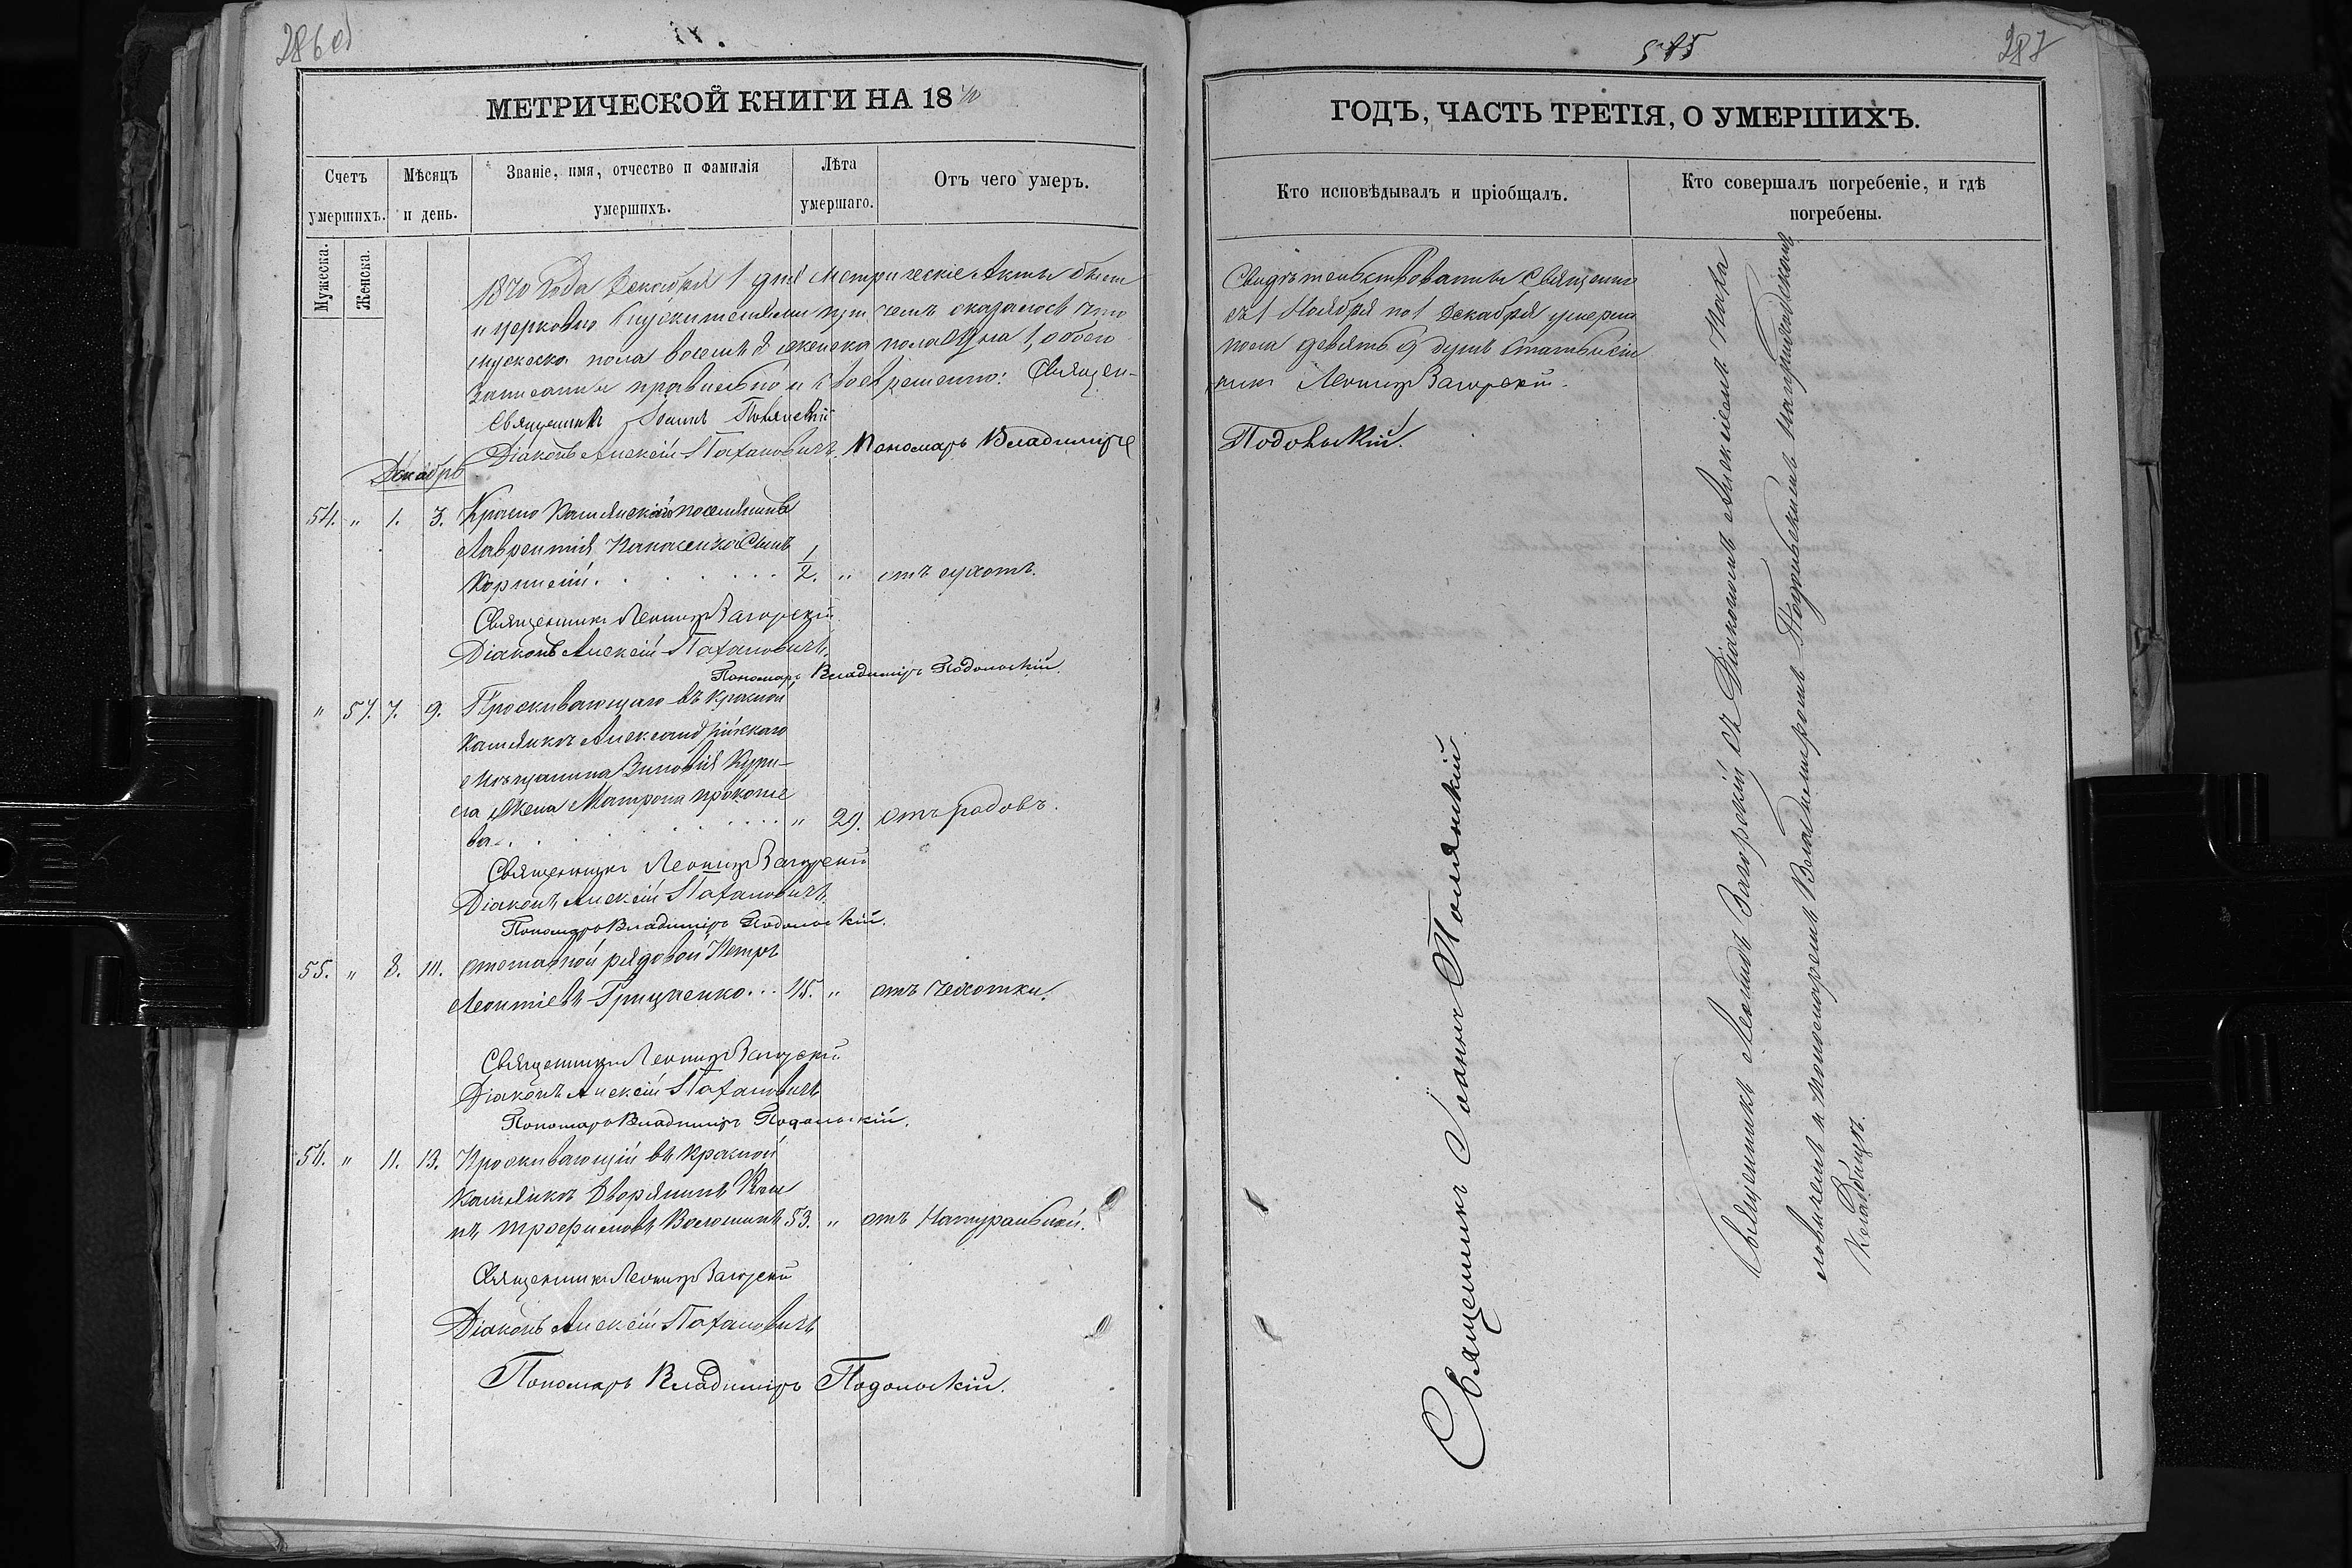 286 об
IX.
МЕТРИЧЕСКОЙ КНИГИ НА 1870
Счетъ умершихъ.
Мужеска.
Женска.
Мѣсяцъ и день.
Званіе, имя, отчество и фамилія умершихъ.
Лѣта умершаго.
Отъ чего умеръ.
1870 года Декабря 1 дня Метрическіе Акты были
и церковно
чемъ оказалось что
мужеска пола восемь 8 женска пола одна 1, обоего
Записаны правильно и своевременно: Священ-
Священникъ Іоаннъ Полянскій
Діаконъ Алексій Пахаловичъ. Пономарь Владиміръ
Декабрь
54. " 1. 3. Красно Камянскаго поселянина
Лаврентія Панасенка Сынъ
Корнилій. 1/2. " отъ сухотъ.
Священникъ Леонидъ Загорскій
Діаконъ Алексій Пахаловичъ.
Пономарь Владиміръ Подольскій.
" 57. 7. 9. Проживающаго въ Красной
Камянкѣ Александрійскаго
мѣщанина Зиновія
жена Матрона Прокопіе
ва. " 29. отъ родовъ.
Священникъ Леонидъ Загорскій
Діаконъ Алексій Пахаловичъ
Пономарь Владиміръ Подольскій.
55. " 8. 10. отставной рядовой Петръ
Леонтіевъ Грищенко... 45. " отъ чахотки.
Священникъ Леонидъ Загорскій
Діаконъ Алексій Пахаловичъ
Пономарь Владиміръ Подольскій.
56. " 11. 13. Проживающій въ Красной
Камянкѣ Дворянинъ
Трофимовъ Волошинъ 53. " отъ Натуральной.
Священникъ Леонидъ Загорскій
Діаконъ Алексій Пахаловичъ
Пономарь Владиміръ Подольскій.
287
ГОДЪ, ЧАСТЬ ТРЕТІЯ, О УМЕРШИХЪ.
Кто исповѣдывалъ и пріобщалъ.
Кто совершалъ погребеніе, и гдѣ погребены.
Свидѣтельствованы Священно
съ 1 Ноября по 1 Декабря умерш
пола девять 9 душъ
никъ Леонидъ Загорскій.
Подольскій.
Священникъ Іоаннъ Полянскій
Священникъ Леонидъ Загорскій съ Діакономъ Алексіемъ Паха
ловичемъ и пономаремъ Владиміромъ Подольскимъ на приходскомъ
Кладбищѣ.